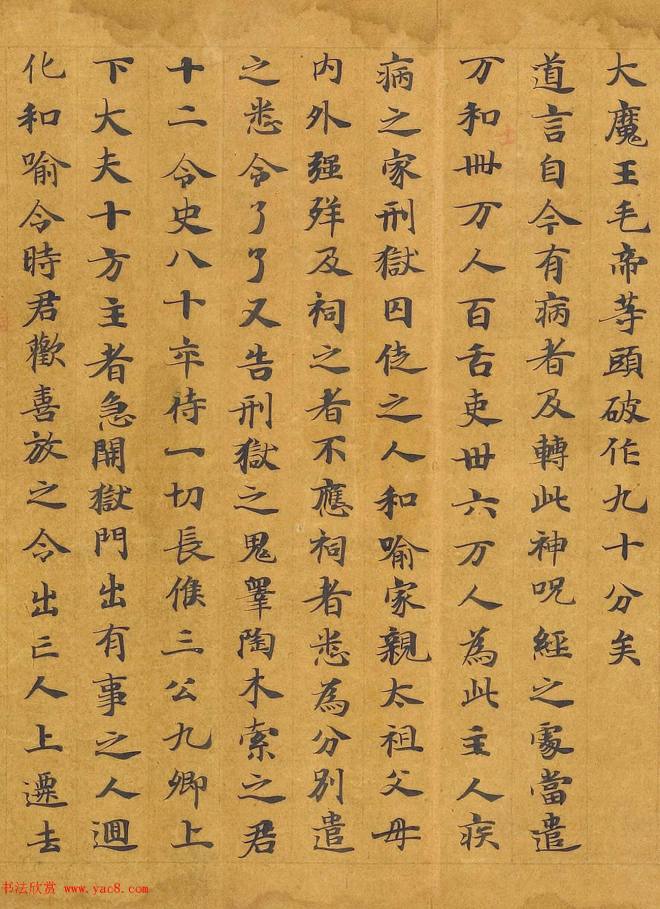 大魔王毛帝等頭破作九十分矣
道言自今有病者及轉此神呪經之處當遣
万和卌万人百舌吏卌六万人為此主人疾
病之家刑獄囚徒之人和喻家親太祖父母
内外强殍及祠之者不應祠者悉為分別遣
之悉令了了又告刑獄之鬼睪陶木索之君
十二令史八十卒侍一切長侯三公九卿上
下大夫十方主者急開獄門出有事之人迴
化和喻令時君歡喜放之令出亡人上遷去
书法欣赏 www.yac8.com